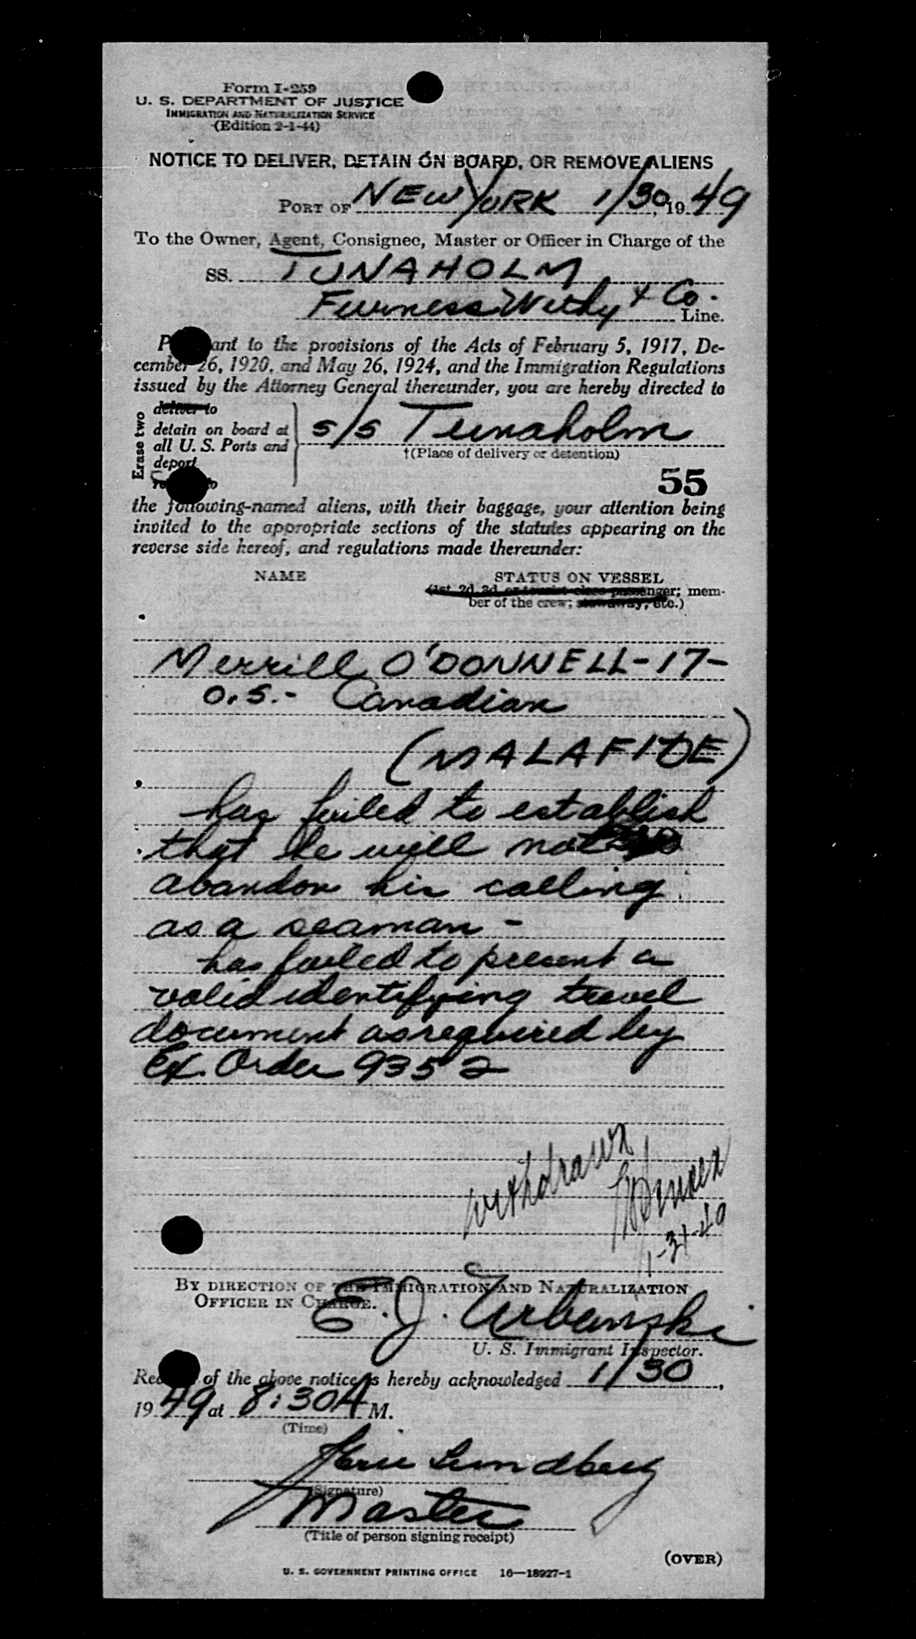 Form I-259
U. S. DEPARTMENT OF JUSTICE
IMMIGRATION AND NATURALIZATION SERVICE
(Edition 2-1-44)
NOTICE TO DELIVER, DETAIN ON BOARD, OR REMOVE ALIENS
PORT OF NEW YORK 1/30, 1949
To the Owner, Agent, Consignee, Master or Officer in Charge of the
SS. TUNAHOLM
Furness Withy & Co. Line.
P ant to the provisions of the Acts of February 5, 1917, De-
cember 26, 1920, and May 26, 1924, and the Immigration Regulations
issued by the Attorney General thereunder, you are hereby directed to
Erase two
deliver to
detain on board at
all U. S. Ports and
deport
s/s Tunaholm
†(Place of delivery or detention)
55
the following-named aliens, with their baggage, your attention being
invited to the appropriate sections of the statutes appearing on the
reverse side hereof, and regulations made thereunder:
NAME STATUS ON VESSEL
(1st, 2d, 3d, or tourist class passenger; mem-
ber of the crew; stowaway, etc.)
Merrill O'DONNELL-17-
O.S.- Canadian
(MALAFIDE)
has failed to establish
that he will not
abandon his calling
as a seaman -
has failed to present a
valid identifying travel
document as required by
Ex. Order 9352
withdrawn
1-31-49
BY DIRECTION OF THE IMMIGRATION AND NATURALIZATION
OFFICER IN CHARGE.
E. J. Urbanski
U. S. Immigrant Inspector.
Rec of the above notice is hereby acknowledged 1/30,
1949 at 8:30 A M.
(Time)
Lundberg
(Signature)
Master
(Title of person signing receipt)
(OVER)
U. S. GOVERNMENT PRINTING OFFICE 16—18927-1